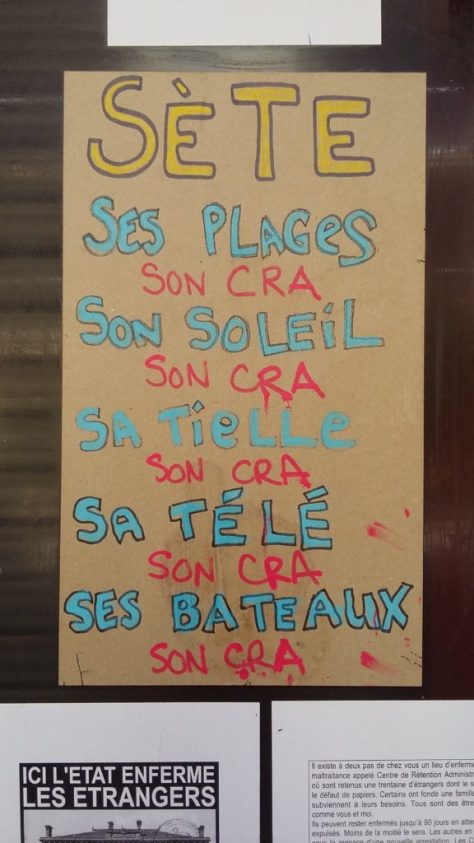 SÈTE
SES PLAGES
SON CRA
SON SOLEIL
SON CRA
SA TIELLE
SON CRA
SA TÉLÉ
SON CRA
SES BATEAUX
SON CRA
ICI L'ETAT ENFERME
LES ETRANGERS
Il existe à deux pas de chez vous un lieu d'enferme
maltraitance appelé Centre de Rétention Administr
où sont retenus une trentaine d'étrangers dont le s
le défaut de papiers. Certains ont fondé une famille
subviennent à leurs besoins. Tous sont des êtres
comme vous et moi.
Ils peuvent rester enfermés jusqu'à 90 jours en atten
expulsés. Moins de la moitié le sera. Les autres en